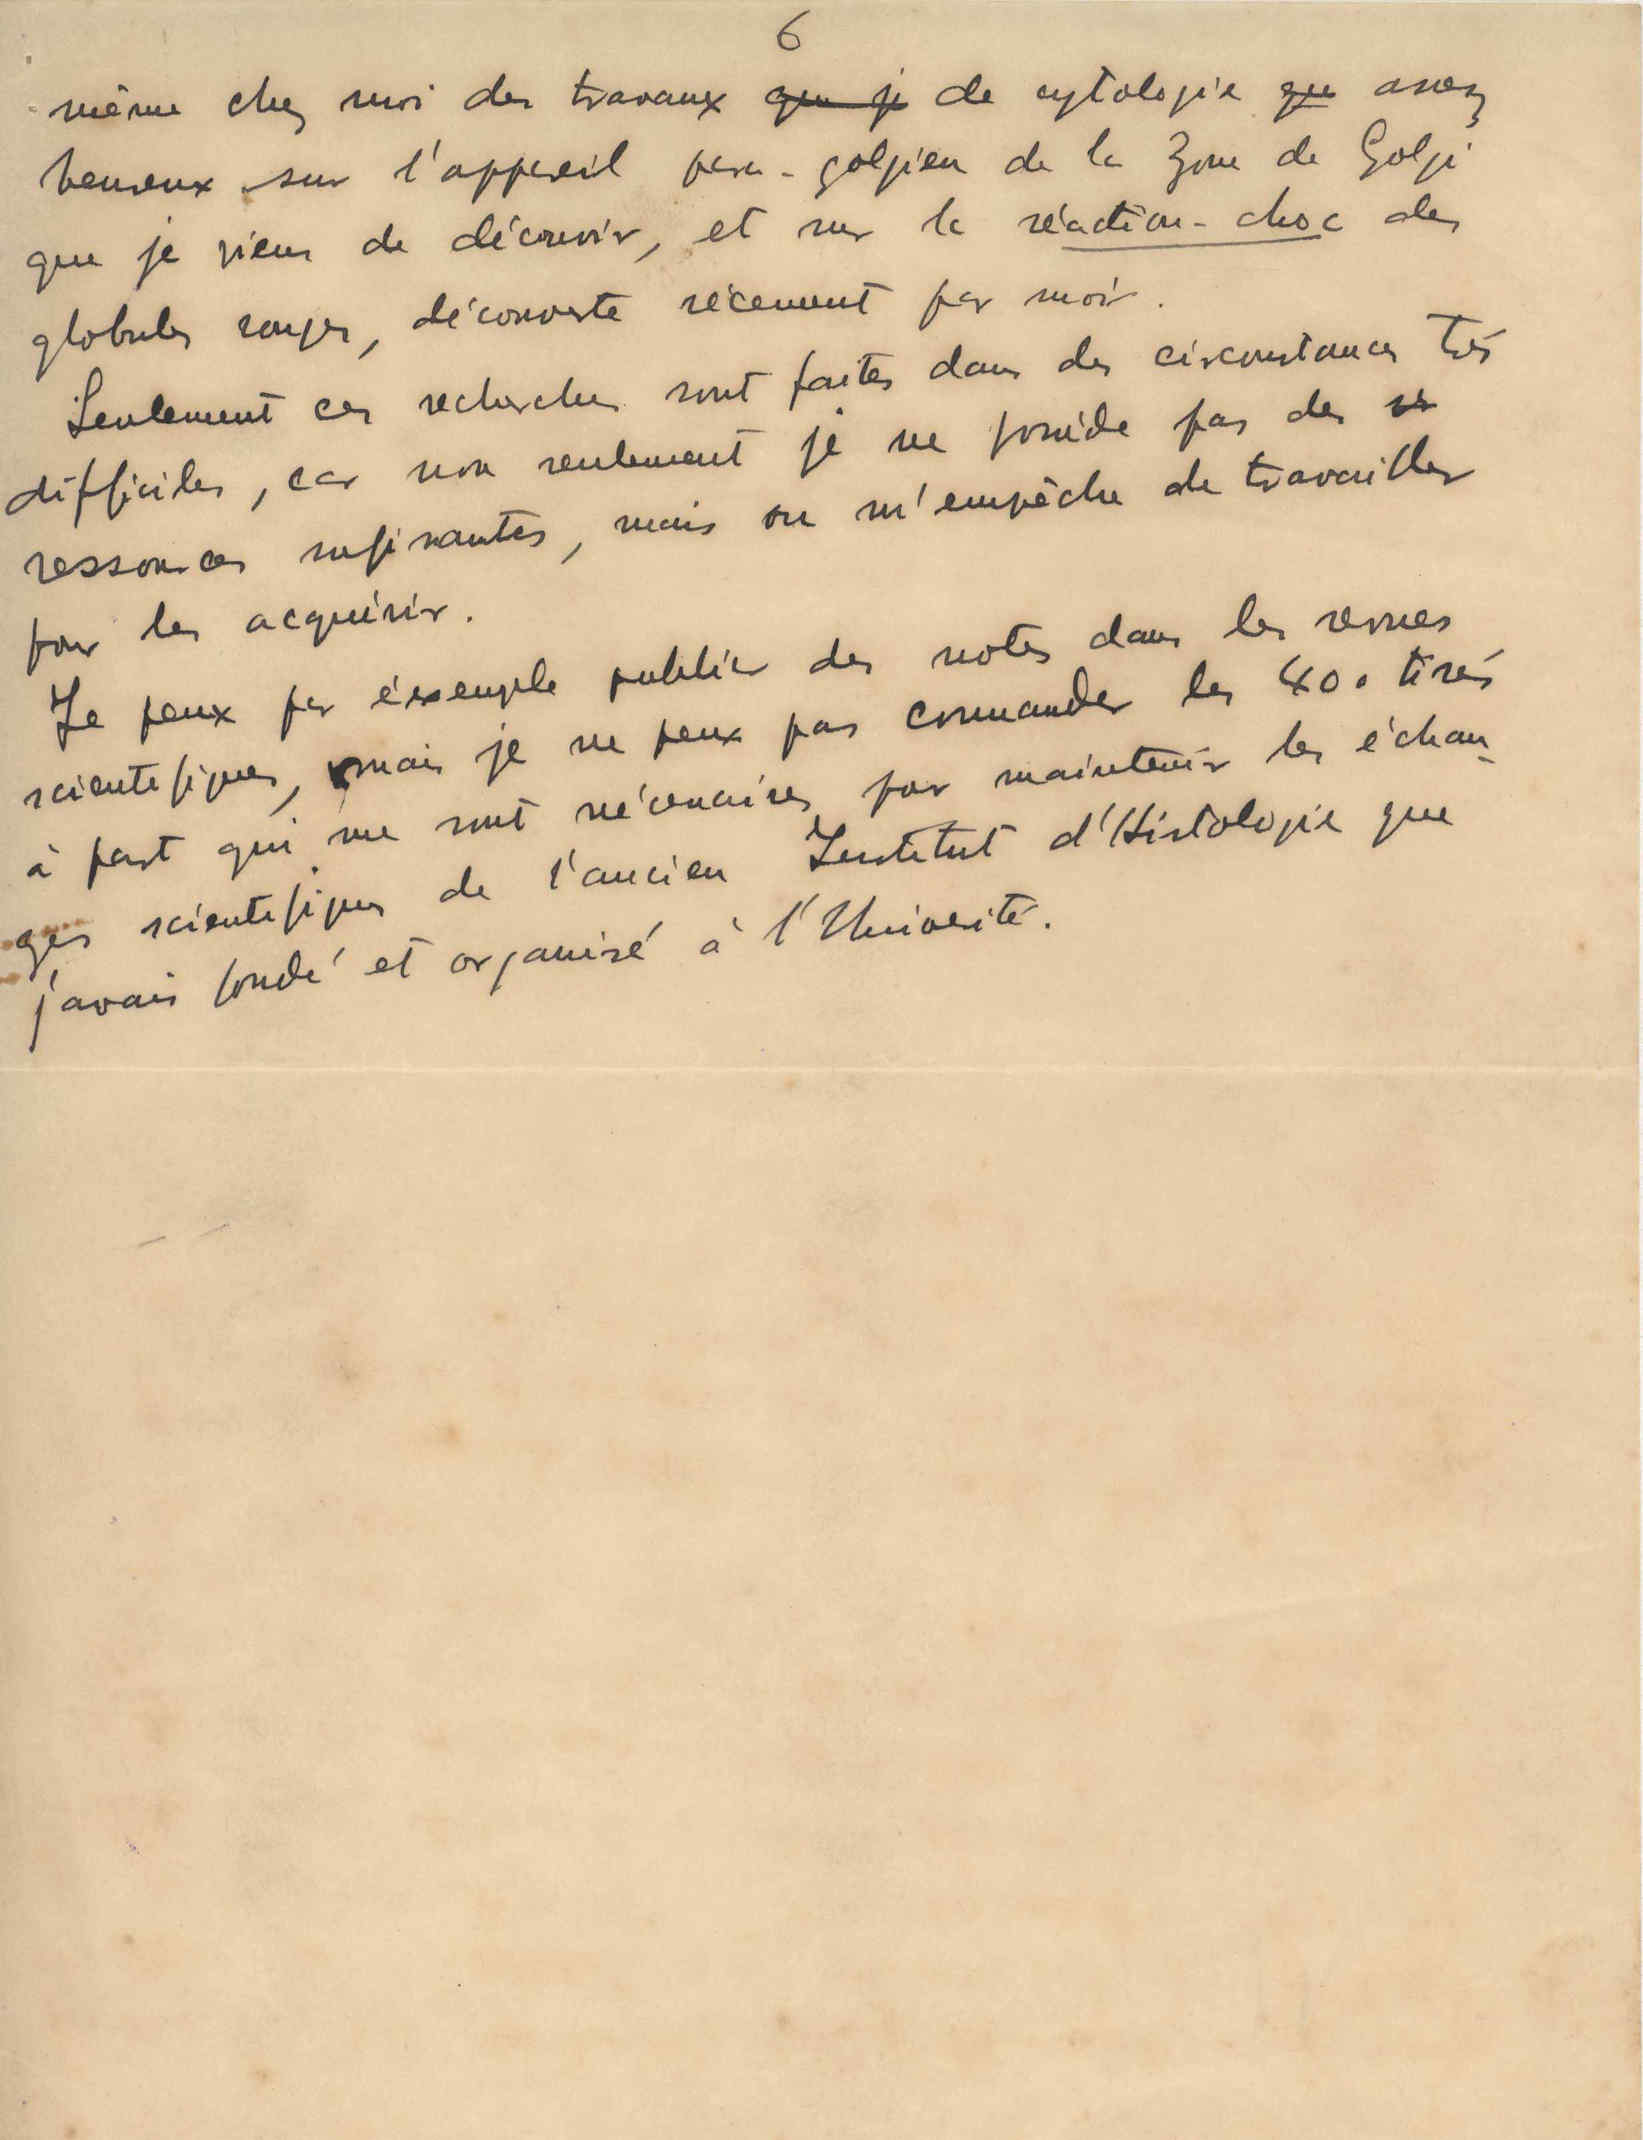 6
même chez moi des travaux que je de cytologie que assez
heureux sur l'appareil para-golgien de la Zone de Golgi
que je viens de découvrir, et sur la réaction-choc des
globules rouges, découverte récement par moi.
Seulement ces recherches sont faites dans des circonstances très
difficiles, car non seulement je ne possède pas des
ressources sufisantes, mais on m'empêche de travailler
pour les acquérir.
Je peux par éxemple publier des notes dans les revues
scientifiques, mais je ne peux pas commander les 400 tirés
à part qui me sont nécessaires pour maintenir les échan-
ges scientifiques de l'ancien Institut d'Histologie que
j'avais fondé et organisé à l'Université.